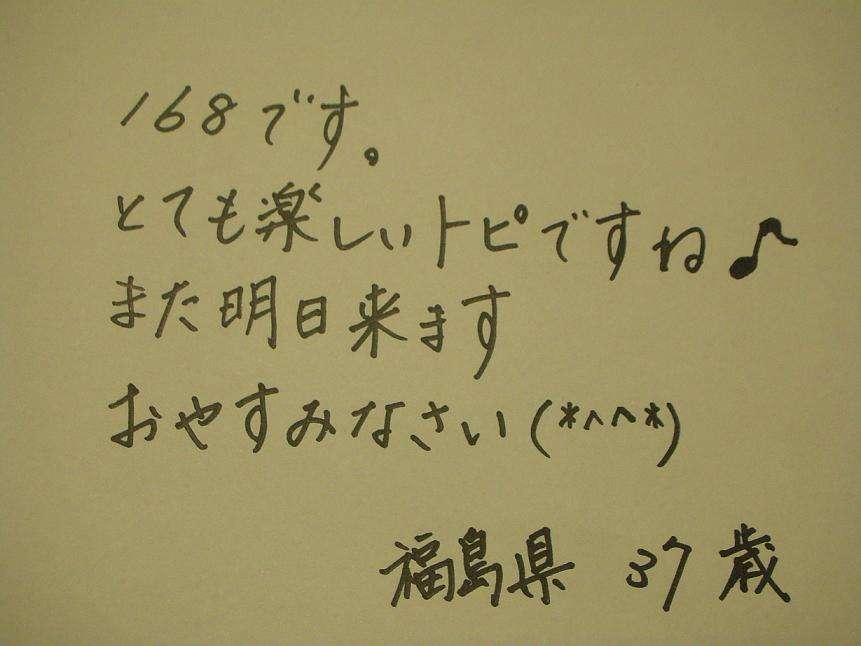 168です。
とても楽しいトピですね♪
また明日来ます
おやすみなさい(*^^*)
福島県 37歳